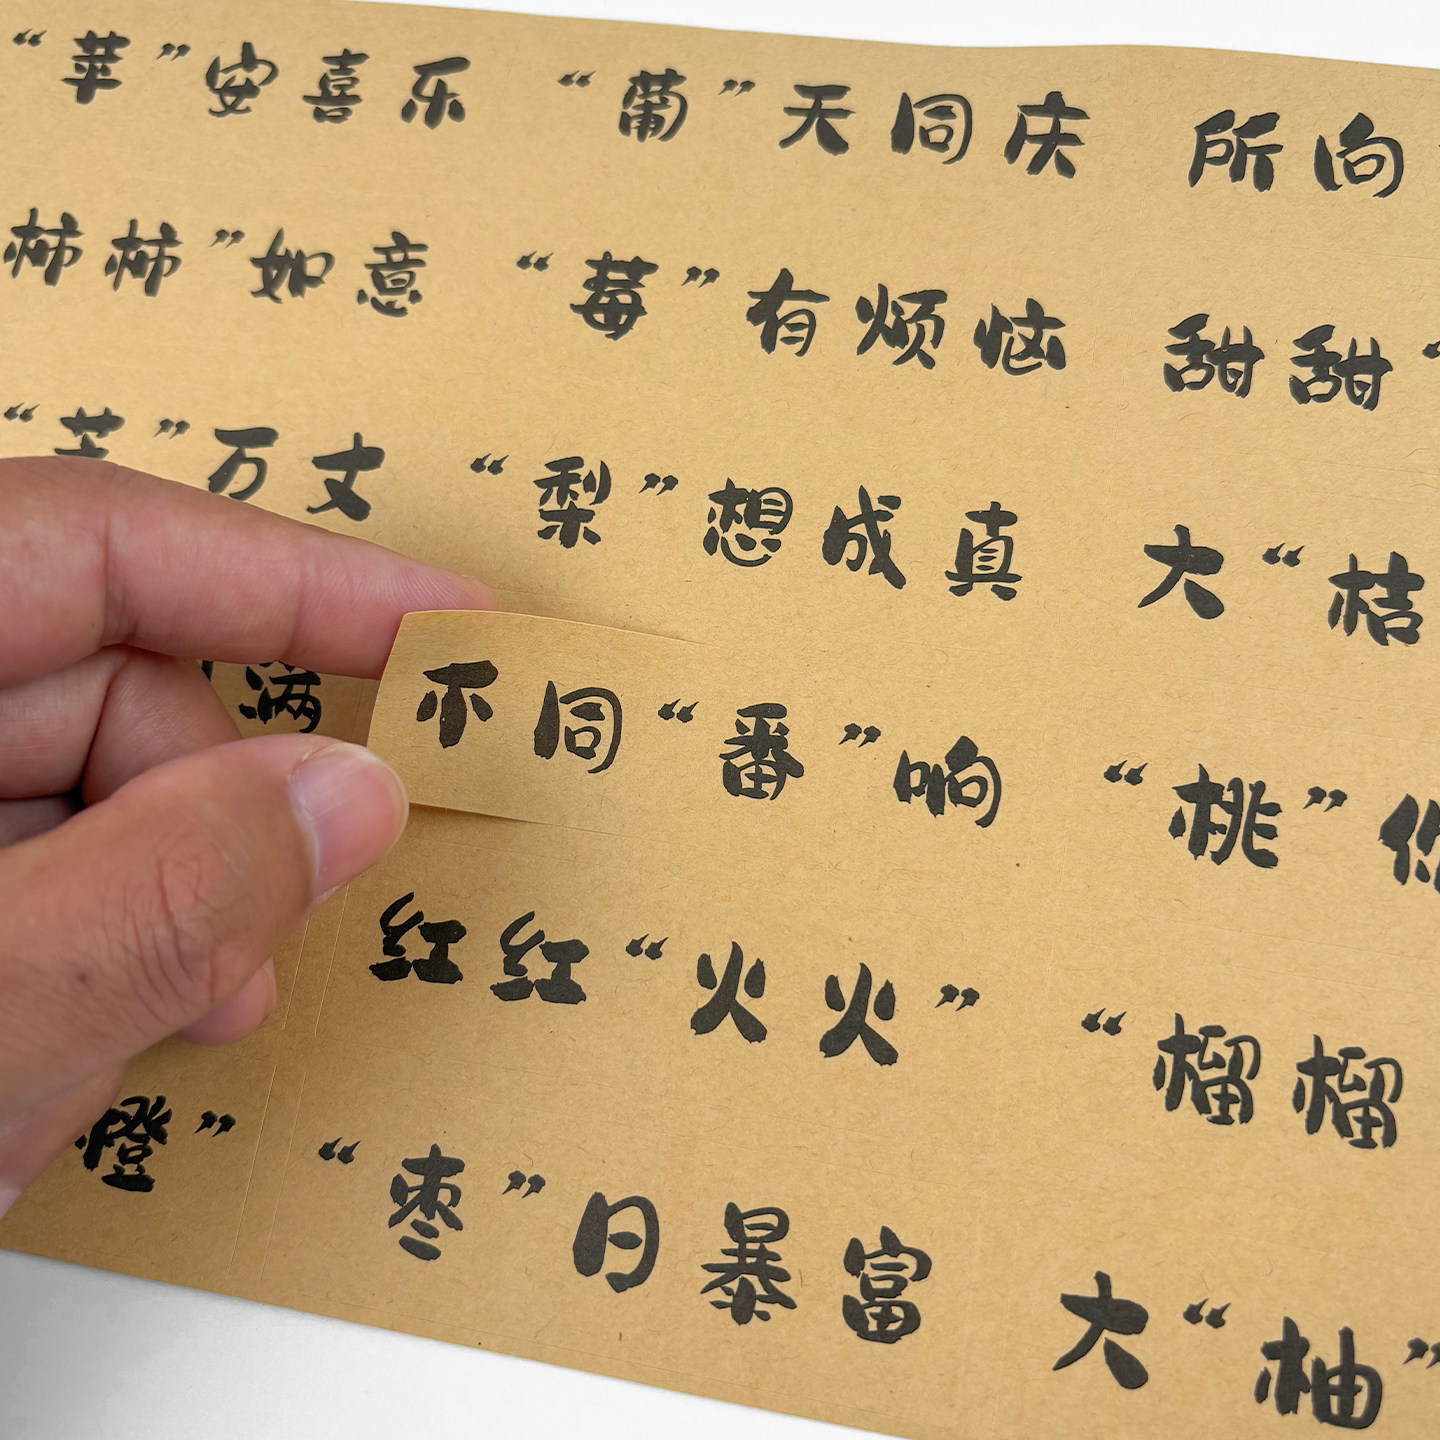 “苹”安喜乐 “葡”天同庆 所向
柿柿”如意 “莓”有烦恼 甜甜“
“芒”万丈 “梨”想成真 大“桔
满 不同“番”响 “桃”你
红红“火火” “榴榴
橙” “枣”日暴富 大“柚”